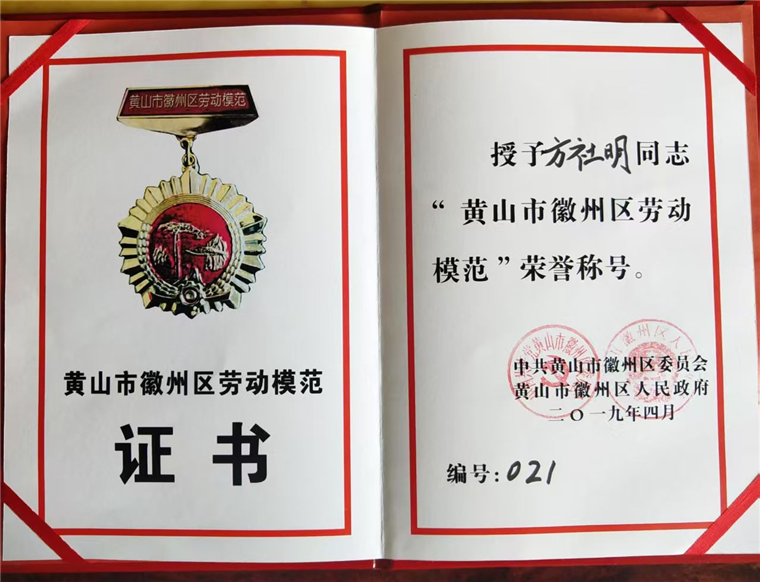 黄山市徽州区劳动模范
黄山市徽州区劳动模范
证书
授予方社明同志
“黄山市徽州区劳动
模范”荣誉称号。
中共黄山市徽州区委员会
黄山市徽州区人民政府
二〇一九年四月
编号:021